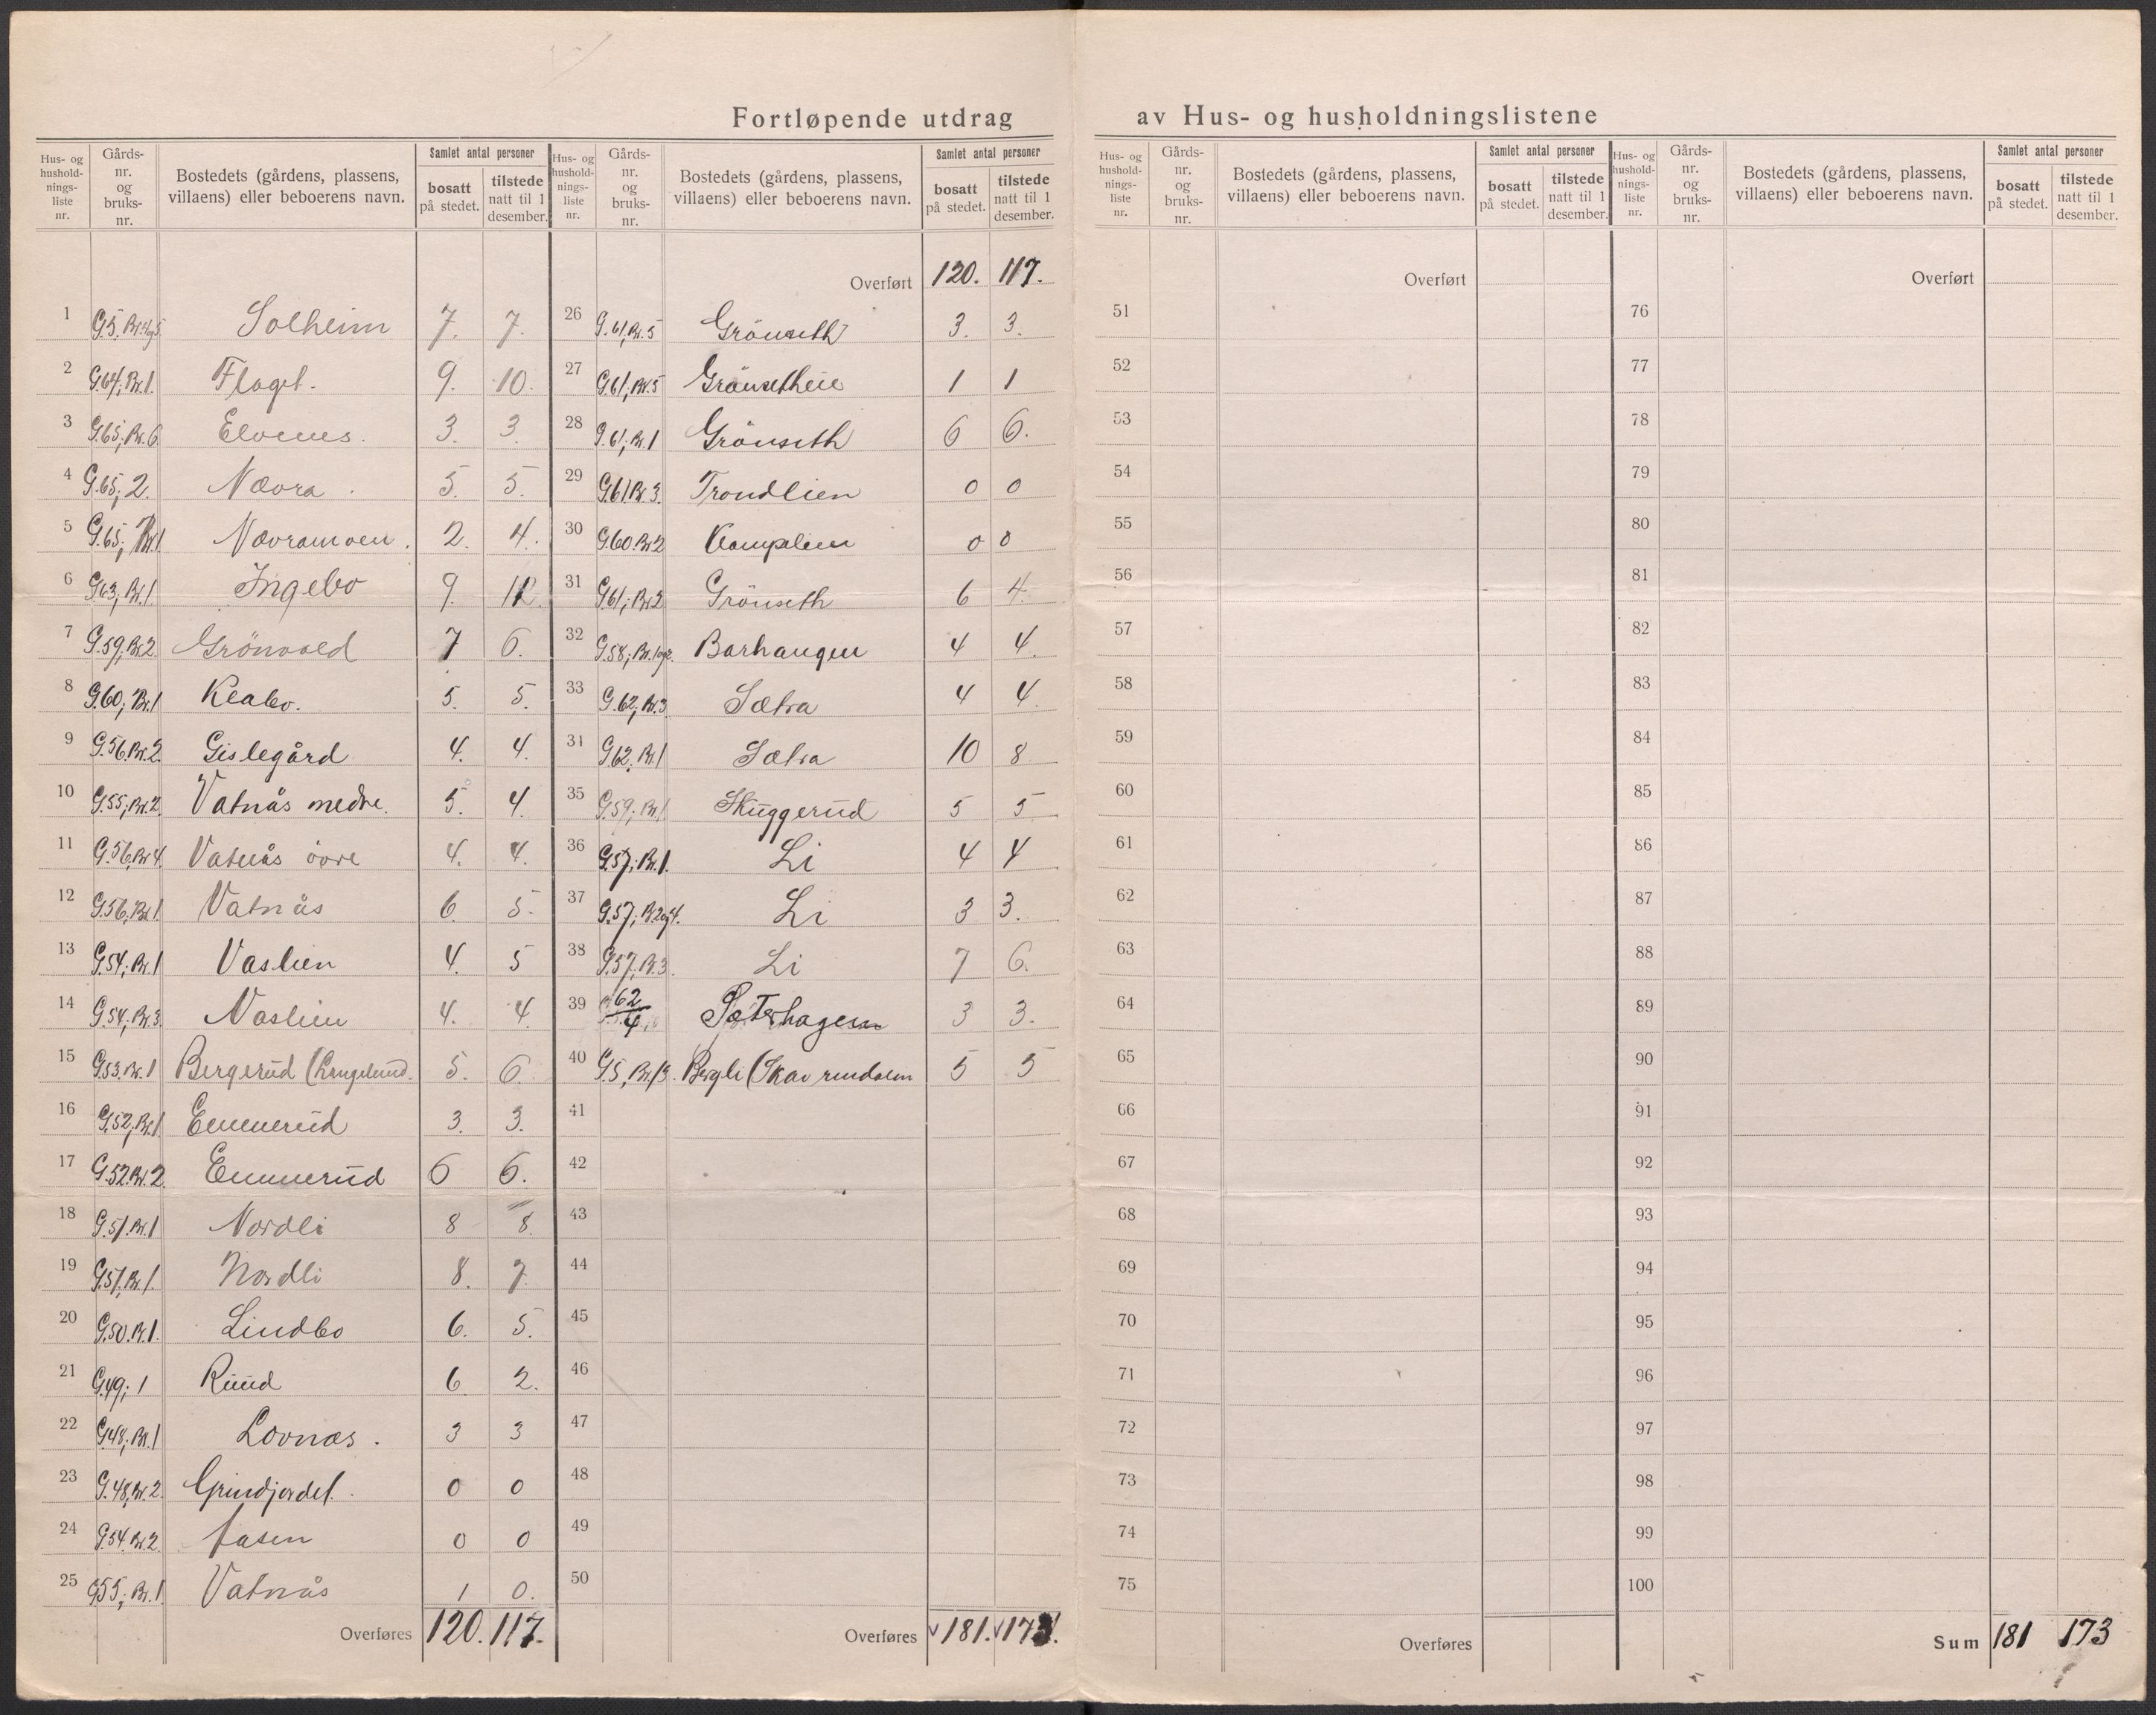 Fortløpende utdrag av Hus- og husholdningslistene
Hus- og hushold-nings-liste nr. | Gårds-nr. og bruks-nr. | Bostedets (gårdens, plassens, villaens) eller beboerens navn. | Samlet antal personer | bosatt på stedet. | tilstede natt til 1 desember.
1 G5, Br. Solheim 7. 7.
2 G.64, Br.1. Flaget. 9. 10.
3 G.65, Br.6 Elvenes. 3. 3
4 G.65, 2. Nævra. 5. 5.
5 G.65, Br.1 Nævramoen. 2. 4.
6 G.63, Br.1. Ingebo 9. 12.
7 G.59, Br.2. Grönvold 7 6.
8 G.60, Br.1 Kleabo. 5. 5.
9 G.56, Br.2. Gislegård 4. 4.
10 G.55, Br.2. Vatnås nedre. 5. 4.
11 G.56, Br.4. Vatnås övre 4. 4.
12 G.56, Br.1 Vatnås 6. 5.
13 G.54, Br.1 Vaslien 4. 5
14 G.54, Br.3. Vaslien 4. 4.
15 G.53. Br.1 Bergerud (Kongelund. 5. 6.
16 G.52, Br.1 Emmerud 3. 3.
17 G.52. Br.2. Emmerud 6 6.
18 G.51. Br.1 Nordli 8 8.
19 G.51. Br.1. Nordli 8. 7
20 G.50. Br.1. Lindbo 6. 5.
21 G.49; 1 Ruud 6. 2.
22 G.48, Br.1 Lovnæs. 3 3
23 G.48, Br.2. Grindjordet. 0 0
24 G.54. Br.2. Aasen 0 0
25 G55; Br.1 Vatnås 1 0.
Overføres 120. 117.
Hus- og hushold-nings-liste nr. | Gårds-nr. og bruks-nr. | Bostedets (gårdens, plassens, villaens) eller beboerens navn. | Samlet antal personer | bosatt på stedet. | tilstede natt til 1 desember.
Overført 120. 117.
26 G.61, Br.5 Grönseth 3. 3.
27 G.61, Br.5 Grönsetheie 1 1
28 G.61, Br.1 Grönseth 6 6.
29 G.61 Br.3. Trondlien 0 0
30 G.60. Br.2 Kamplien 0 0
31 G.61; Br.2 Grönseth 6 4.
32 G.58, Br.1og2. Barhaugen 4 4.
33 G.62, Br.3 Sætra 4 4.
31 G.62. Br.1 Sætra 10 8
35 G.59, Br.1. Skuggerud 5 5
36 G.57, Br.1. Li 4 4
37 G.57; B.2og4. Li 3 3.
38 G.57, Br.3. Li 7 6.
39 62/4 Sæterhagen 3 3.
40 G.5, Br.13. Bergli (Skavrudalen 5 5
41
42
43
44
45
46
47
48
49
50
Overføres 181. 173.
Hus- og hushold-nings-liste nr. | Gårds-nr. og bruks-nr. | Bostedets (gårdens, plassens, villaens) eller beboerens navn. | Samlet antal personer | bosatt på stedet. | tilstede natt til 1 desember.
Overført
51
52
53
54
55
56
57
58
59
60
61
62
63
64
65
66
67
68
69
70
71
72
73
74
75
Overføres
Hus- og hushold-nings-liste nr. | Gårds-nr. og bruks-nr. | Bostedets (gårdens, plassens, villaens) eller beboerens navn. | Samlet antal personer | bosatt på stedet. | tilstede natt til 1 desember.
Overført
76
77
78
79
80
81
82
83
84
85
86
87
88
89
90
91
92
93
94
95
96
97
98
99
100
Sum 181 173